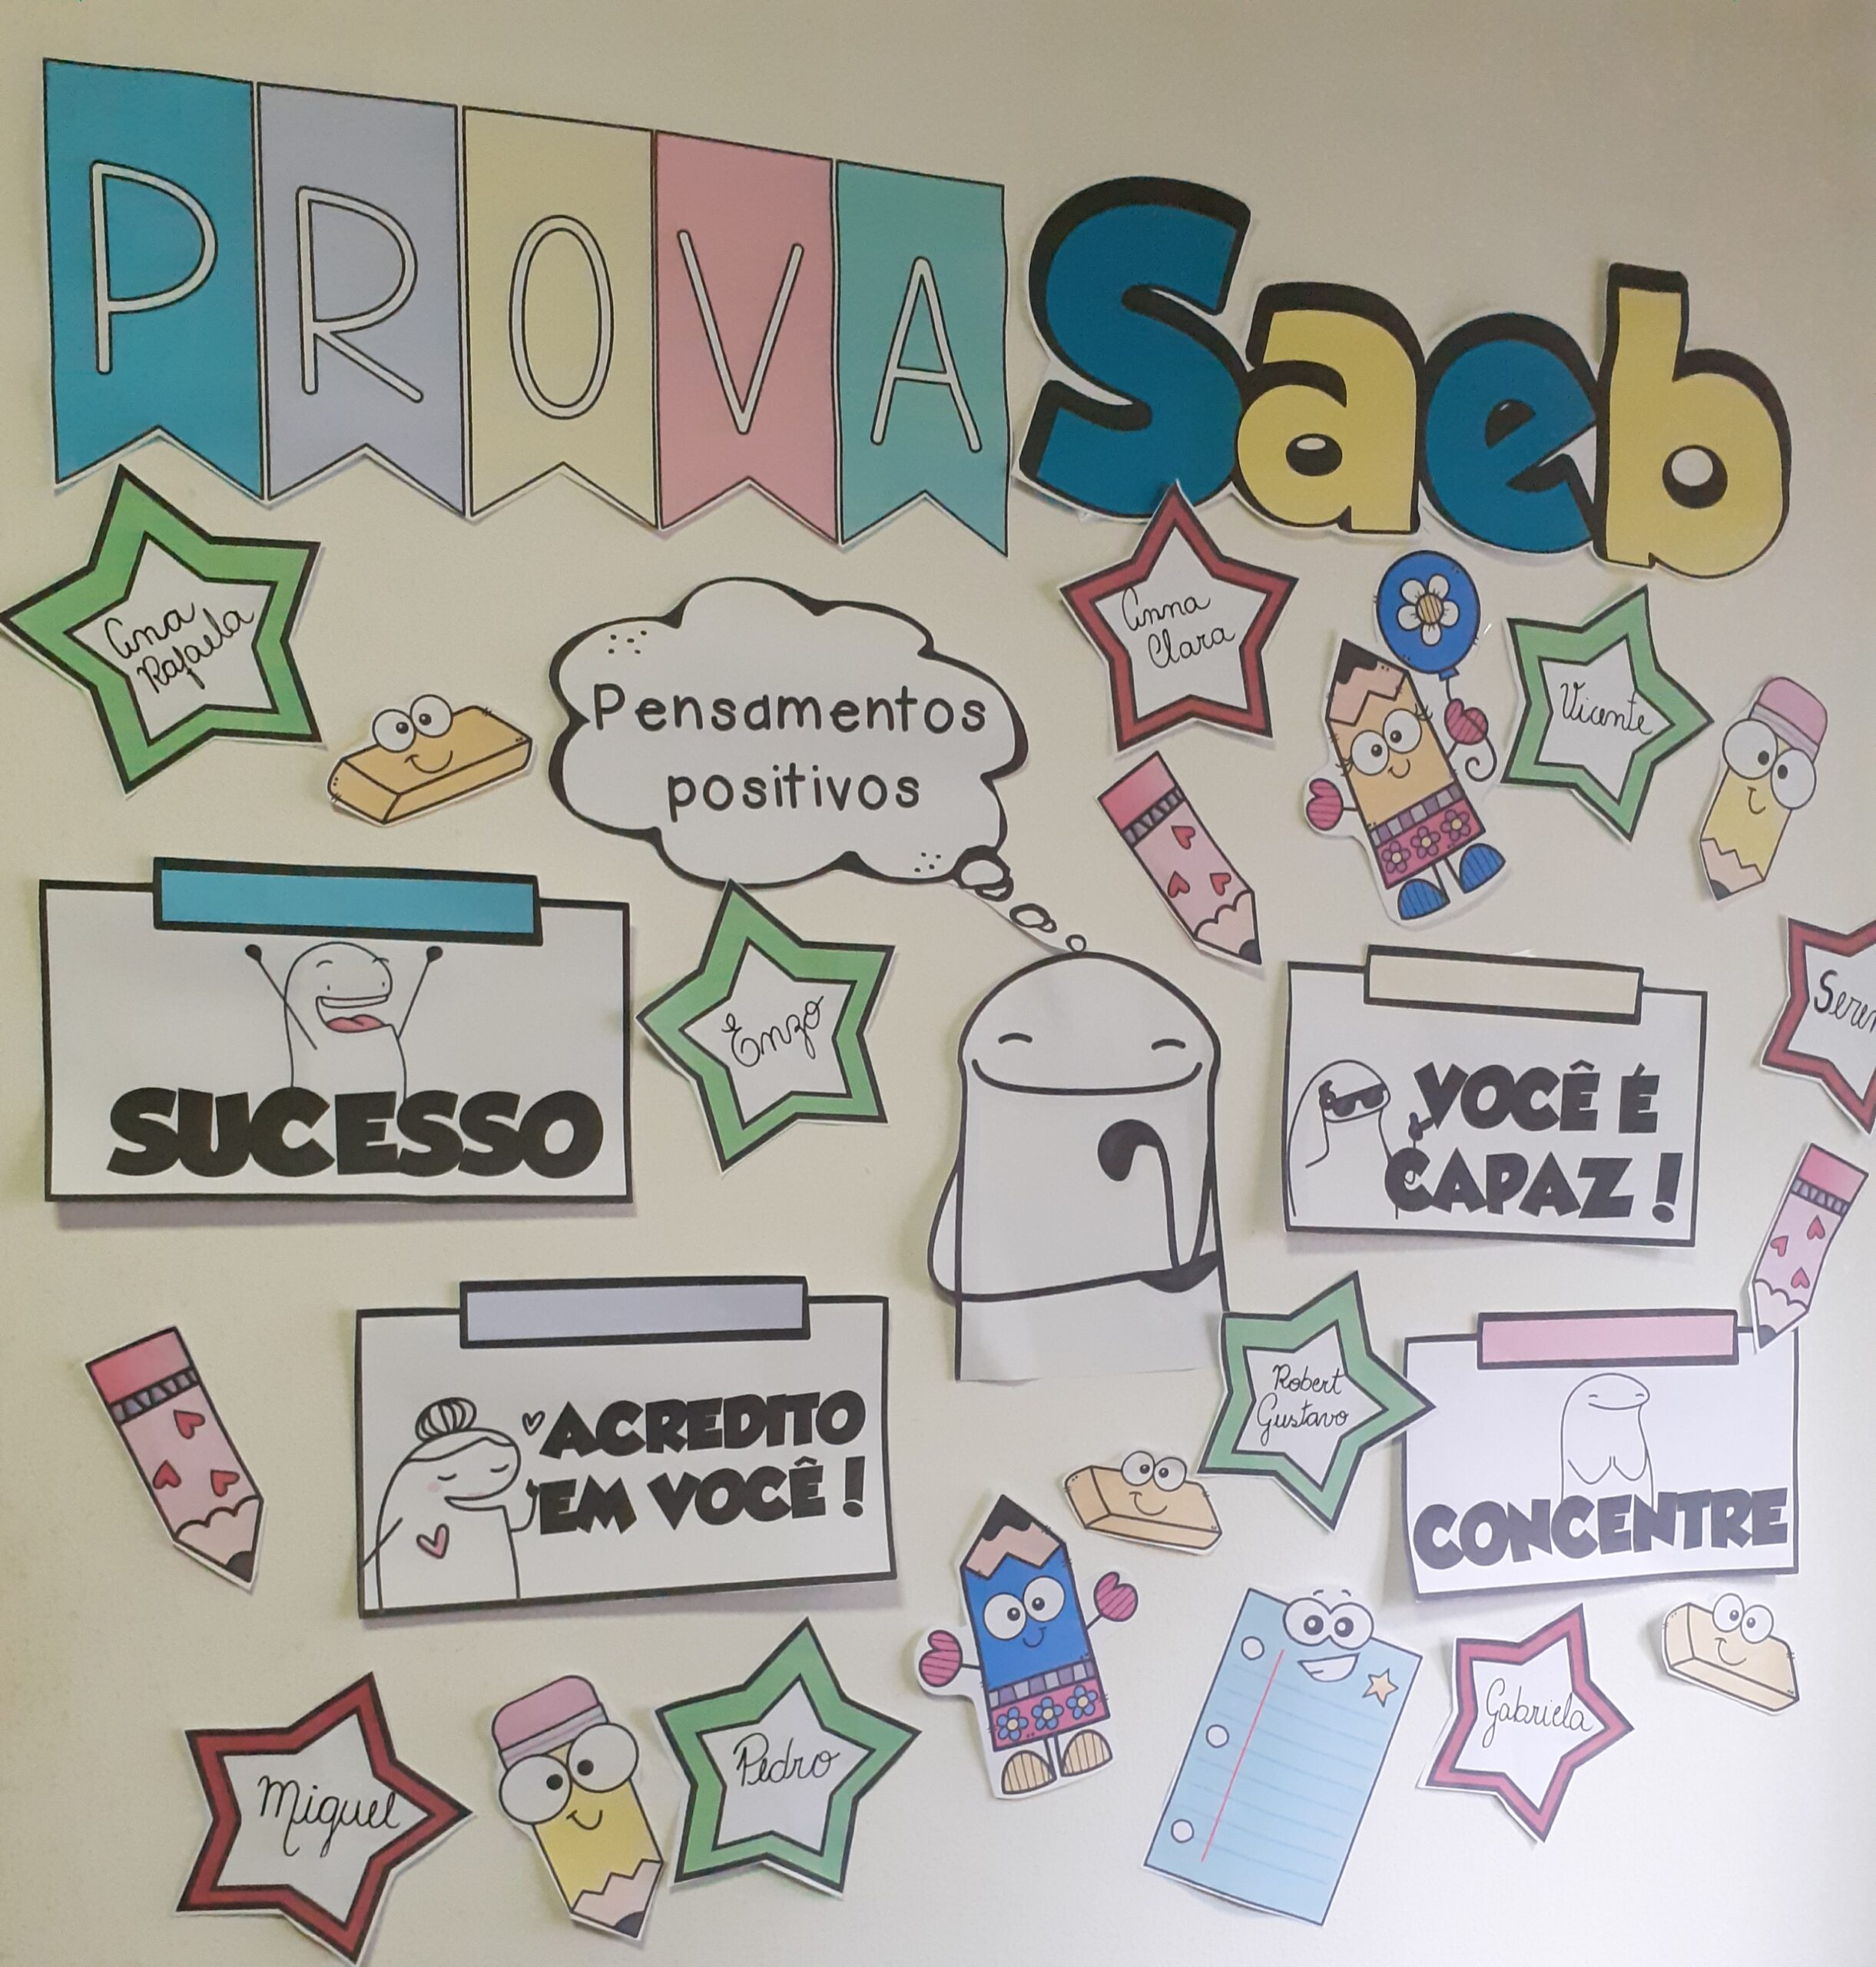 PROVA
Saeb
Ana
Rafaela
Anna
Clara
Vicente
Pensamentos
positivos
SUCESSO
Enzo
VOCÊ É
CAPAZ!
ACREDITO
EM VOCÊ!
Robert
Gustavo
CONCENTRE
Miguel
Pedro
Gabriela